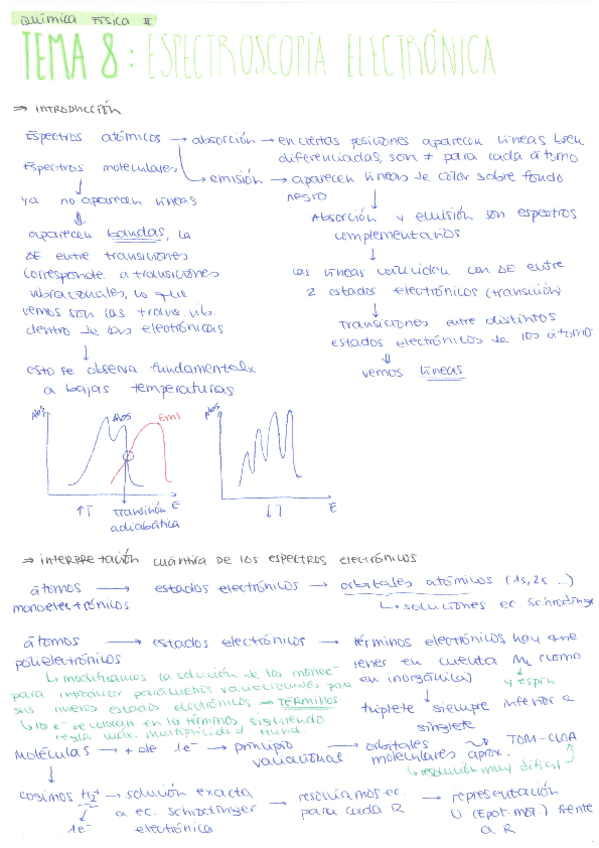 QUÍMICA FÍSICA II
TEMA 8: ESPECTROSCOPÍA ELECTRÓNICA
⇒ INTRODUCCIÓN
Espectros atómicos → absorción → en ciertas posiciones aparecen líneas bien
diferenciadas, son ≠ para cada átomo
→ emisión → aparecen líneas de color sobre fondo
negro
↓
Absorción y emisión son espectros
complementarios
↓
las líneas coinciden con ΔE entre
2 estados electrónicos (transición)
↓
Transiciones entre distintos
estados electrónicos de los átomos
↓
vemos líneas
Espectros moleculares
↓
ya no aparecen líneas
⇓
aparecen bandas, la
ΔE entre transiciones
corresponde a transiciones
vibracionales, lo que
vemos son las trans. vib.
dentro de las electrónicas
↓
esto se observa fundamental
a bajas temperaturas
Abs
Abs
Emi
E
↑T
Transición
adiabática
Abs
E
↓T
⇒ interpretación cuántica de los espectros electrónicos
átomos → estados electrónicos → orbitales atómicos (1s, 2s ...)
monoelectrónicos
↳ soluciones ec. schrödinger
átomos → estados electrónicos → términos electrónicos hay que
polielectrónicos
tener en cuenta ML (como
en inorgánica)
y espín
↓
triplete siempre inferior a
singlete
↳ modificamos la solución de los monoe-
para introducir parámetros variacionales para
sus nuevos estados electrónicos → TÉRMINOS
↳ los e- se colocan en lo términos siguiendo
regla max. multiplicidad Hund
moléculas → + de 1e- → principio → orbitales TOM-CLOA
variacional moleculares aprox.
↳ resolución muy difícil
⇓
cogimos H2+ → solución exacta → resolvíamos ec. → representación
a ec. schrodinger para cada R U (Epot. mol.) frente
1e- electrónica a R